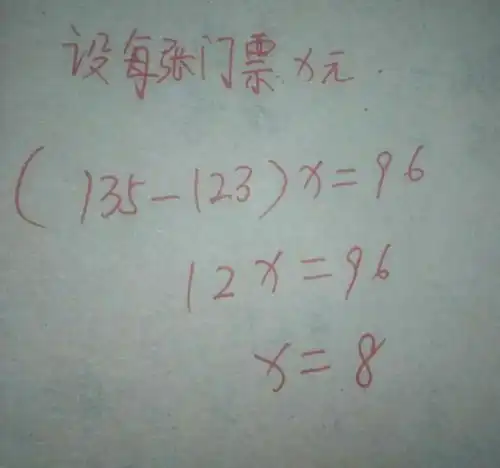 设每张门票x元.
(135-123)x=96
12x=96
x=8